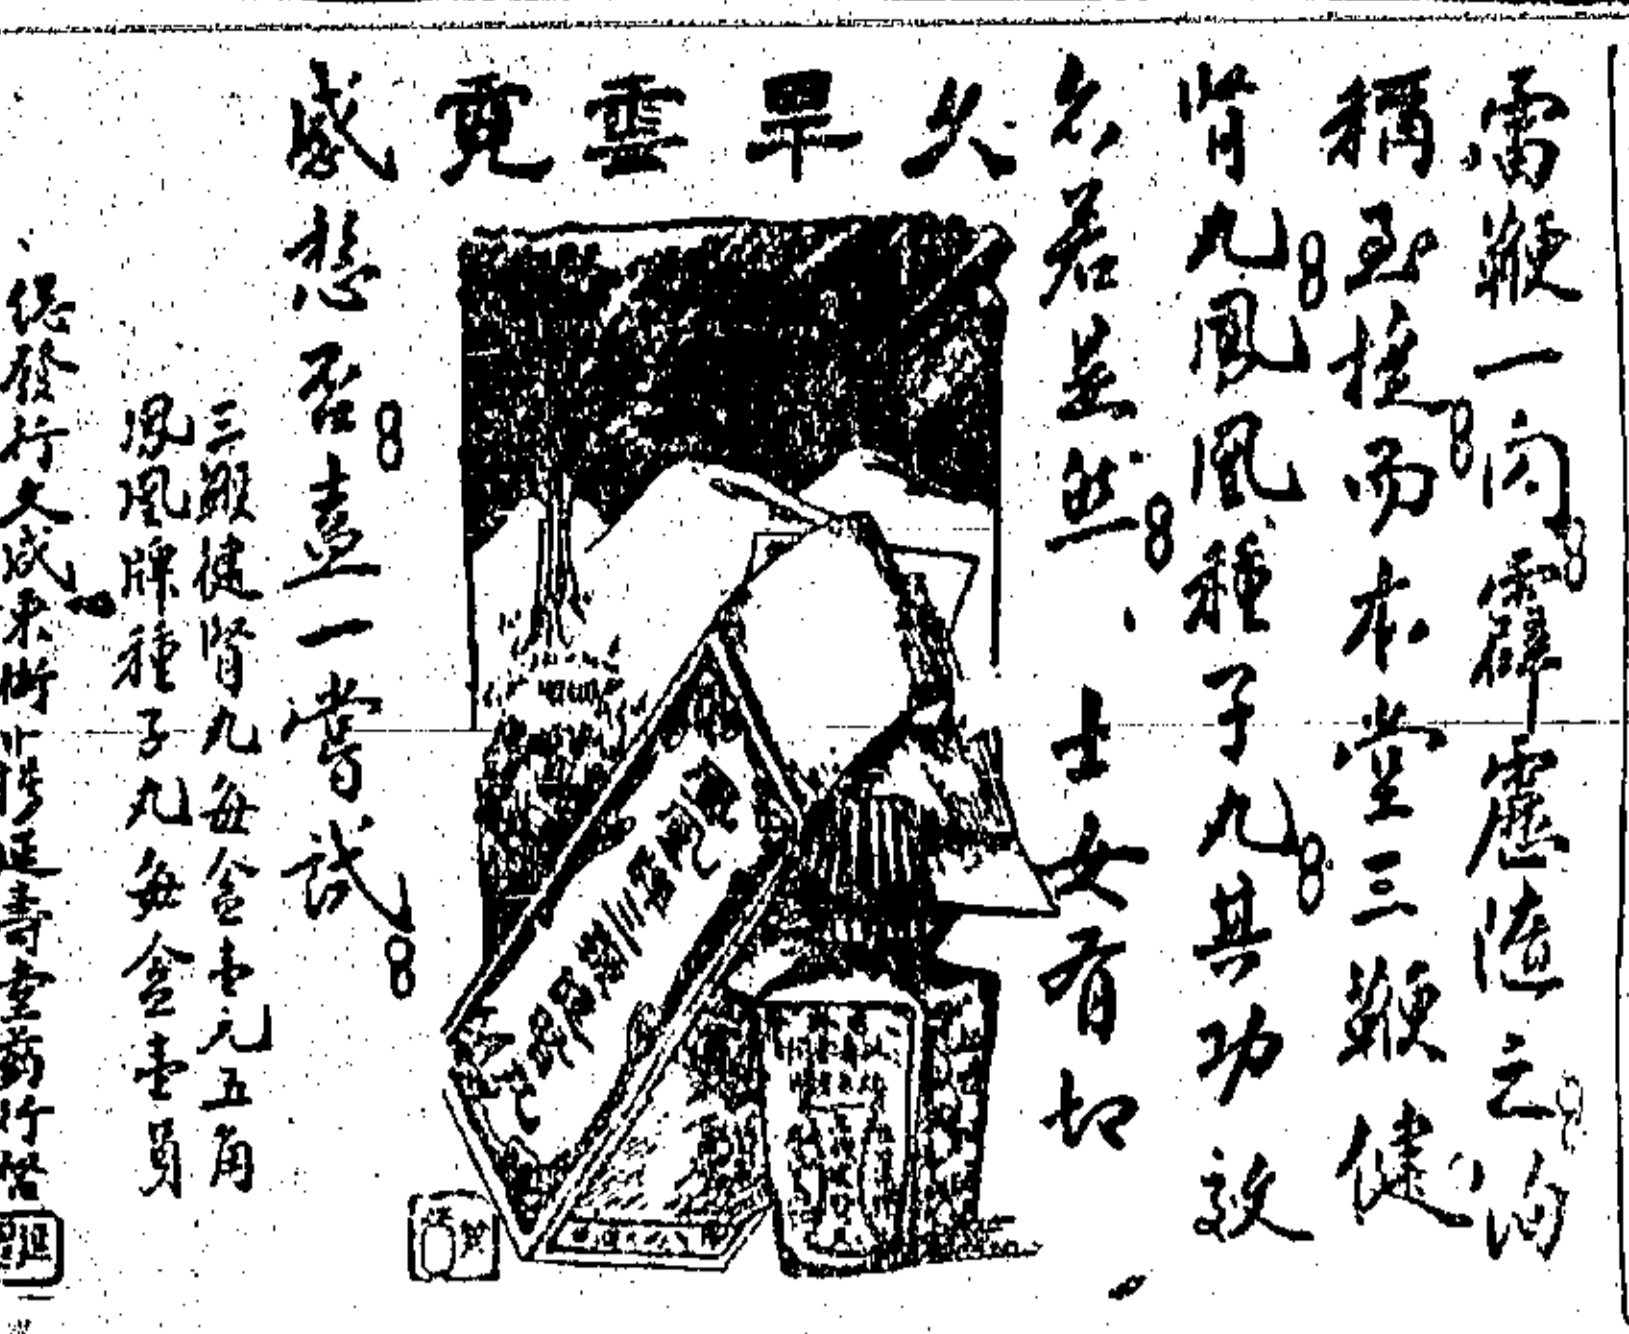 久旱雲霓
雷鞭一闪霹靂隨之洵
稱至捷而本堂三鞭健
腎丸鳳凰種子丸其功效
亦若是然、士女有切
感愁否盍一嘗試
三鞭健腎丸每盒壹元五角
鳳凰牌種子丸每盒壹員
總發行文咸東街 延壽堂葯行啓